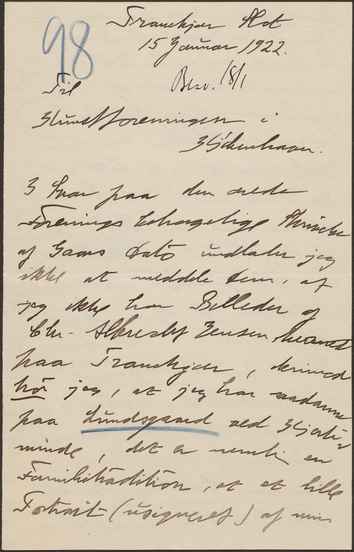 98
Tranekjær Slot
15 Januar 1922.
Besv. 18/1
Til
Kunstforeningen i
Kjøbenhavn.
I Svar paa den ærede
Forenings behagelige Skrivelse
af Gaars Dato undlader jeg
ikke at meddele Dem, at
jeg ikke har Billeder af
Chr. Albrecht Jensen
paa Tranekjær, derimod
tror jeg, at jeg har saadanne
paa Lundsgaard ved Kjerte-
minde, det er nemlig en
Familietradition, at et lille
Portrait (usigneret) af min